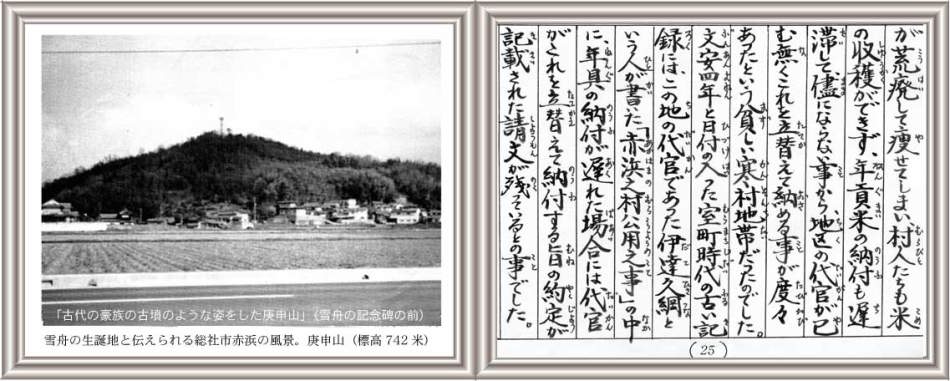 「古代の豪族の古墳のような姿をした庚申山」《雪舟の記念碑の前》
雪舟の生誕地と伝えられる総社市赤浜の風景。庚申山（標高 742 米）
が荒廃して痩せてしまい村人たちも米
の収穫ができず、年貢米の納付も遅
滞して儘にならない事から地区の代官が已
む無くこれを立替えて納める事が度々
あったという貧しい寒村地帯だったのでした。
文安四年と日付の入った室町時代の古い記
録には、この地の代官であった伊達久綱と
いう人が書いた「赤浜之村公用之事」の中
に、年具の納付が遅れた場合には代官
がこれを立替えて納付する旨の約定が
記載された請文が残っているとの事でした。
(25)